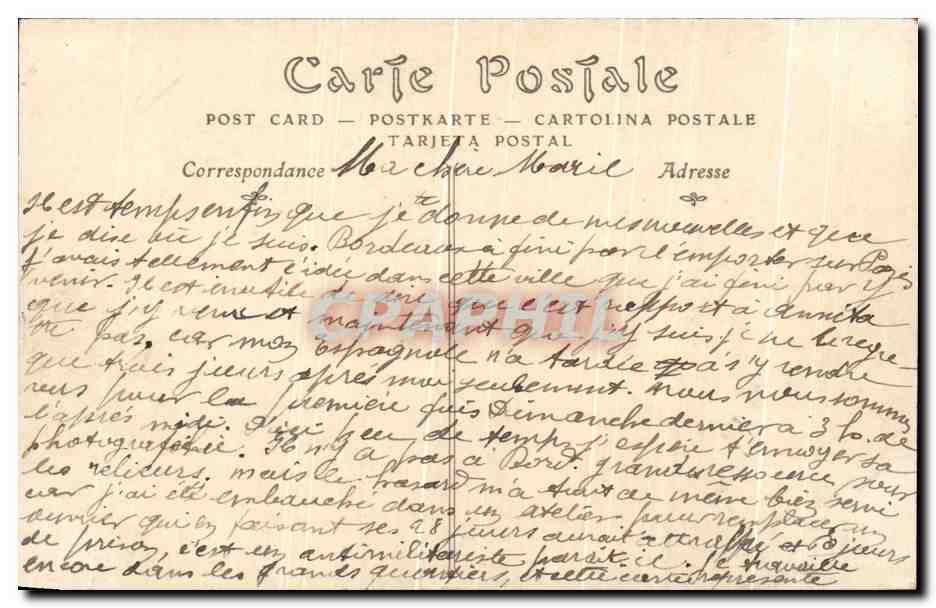 Carte Postale
POST CARD — POSTKARTE — CARTOLINA POSTALE
TARJETA POSTAL
Correspondance Ma chère Marie Adresse
Il est temps enfin que je te donne de mes nouvelles et que
je dise où je suis. Bordeaux a fini par l'emporter sur
j'avais tellement l'idée dans cette ville que j'ai fini par y
venir. Il est inutile de dire que c'est rapport à Annita
que j'y viens et maintenant que j'y suis je ne le regre-
tte pas, car mon Espagnole n'a tardé pas à s'y rendre
que trois jours après moi seulement. Nous nous sommes
vus pour la première fois Dimanche dernier à 3 h. de
l'après midi. D'ici peu de temps j'espère t'envoyer sa
photografie. Il n'y a pas à Bord. grand ressource pour
les relieurs, mais le hasard m'a tout de même bien servi
car j'ai été embauché dans un atelier pour remplacer un
ouvrier qui en faisant ses 28 jours aurait attrappé jours
de prison, c'est un antimilitariste parait-il. Je travaille
encore dans les grands quartiers, et cette carte représente
CPAPHIL